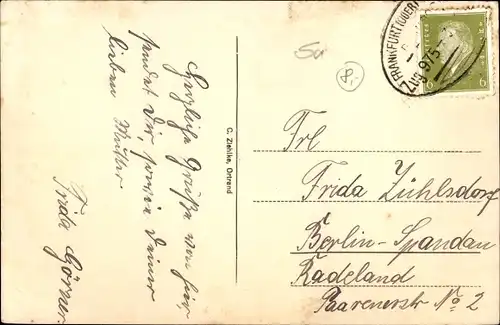 Herzliche Grüße von hier
sendet Dir, sowie Deiner
lieben Mutter
Frida Görner.
C. Ziehlke, Ortrand
5u
8,-
FRANKFURT (ODER)
Zug 975
6 6
Frl
Frida Zühlsdorf
Berlin-Spandau
Radeland
Paarenerstr No 2